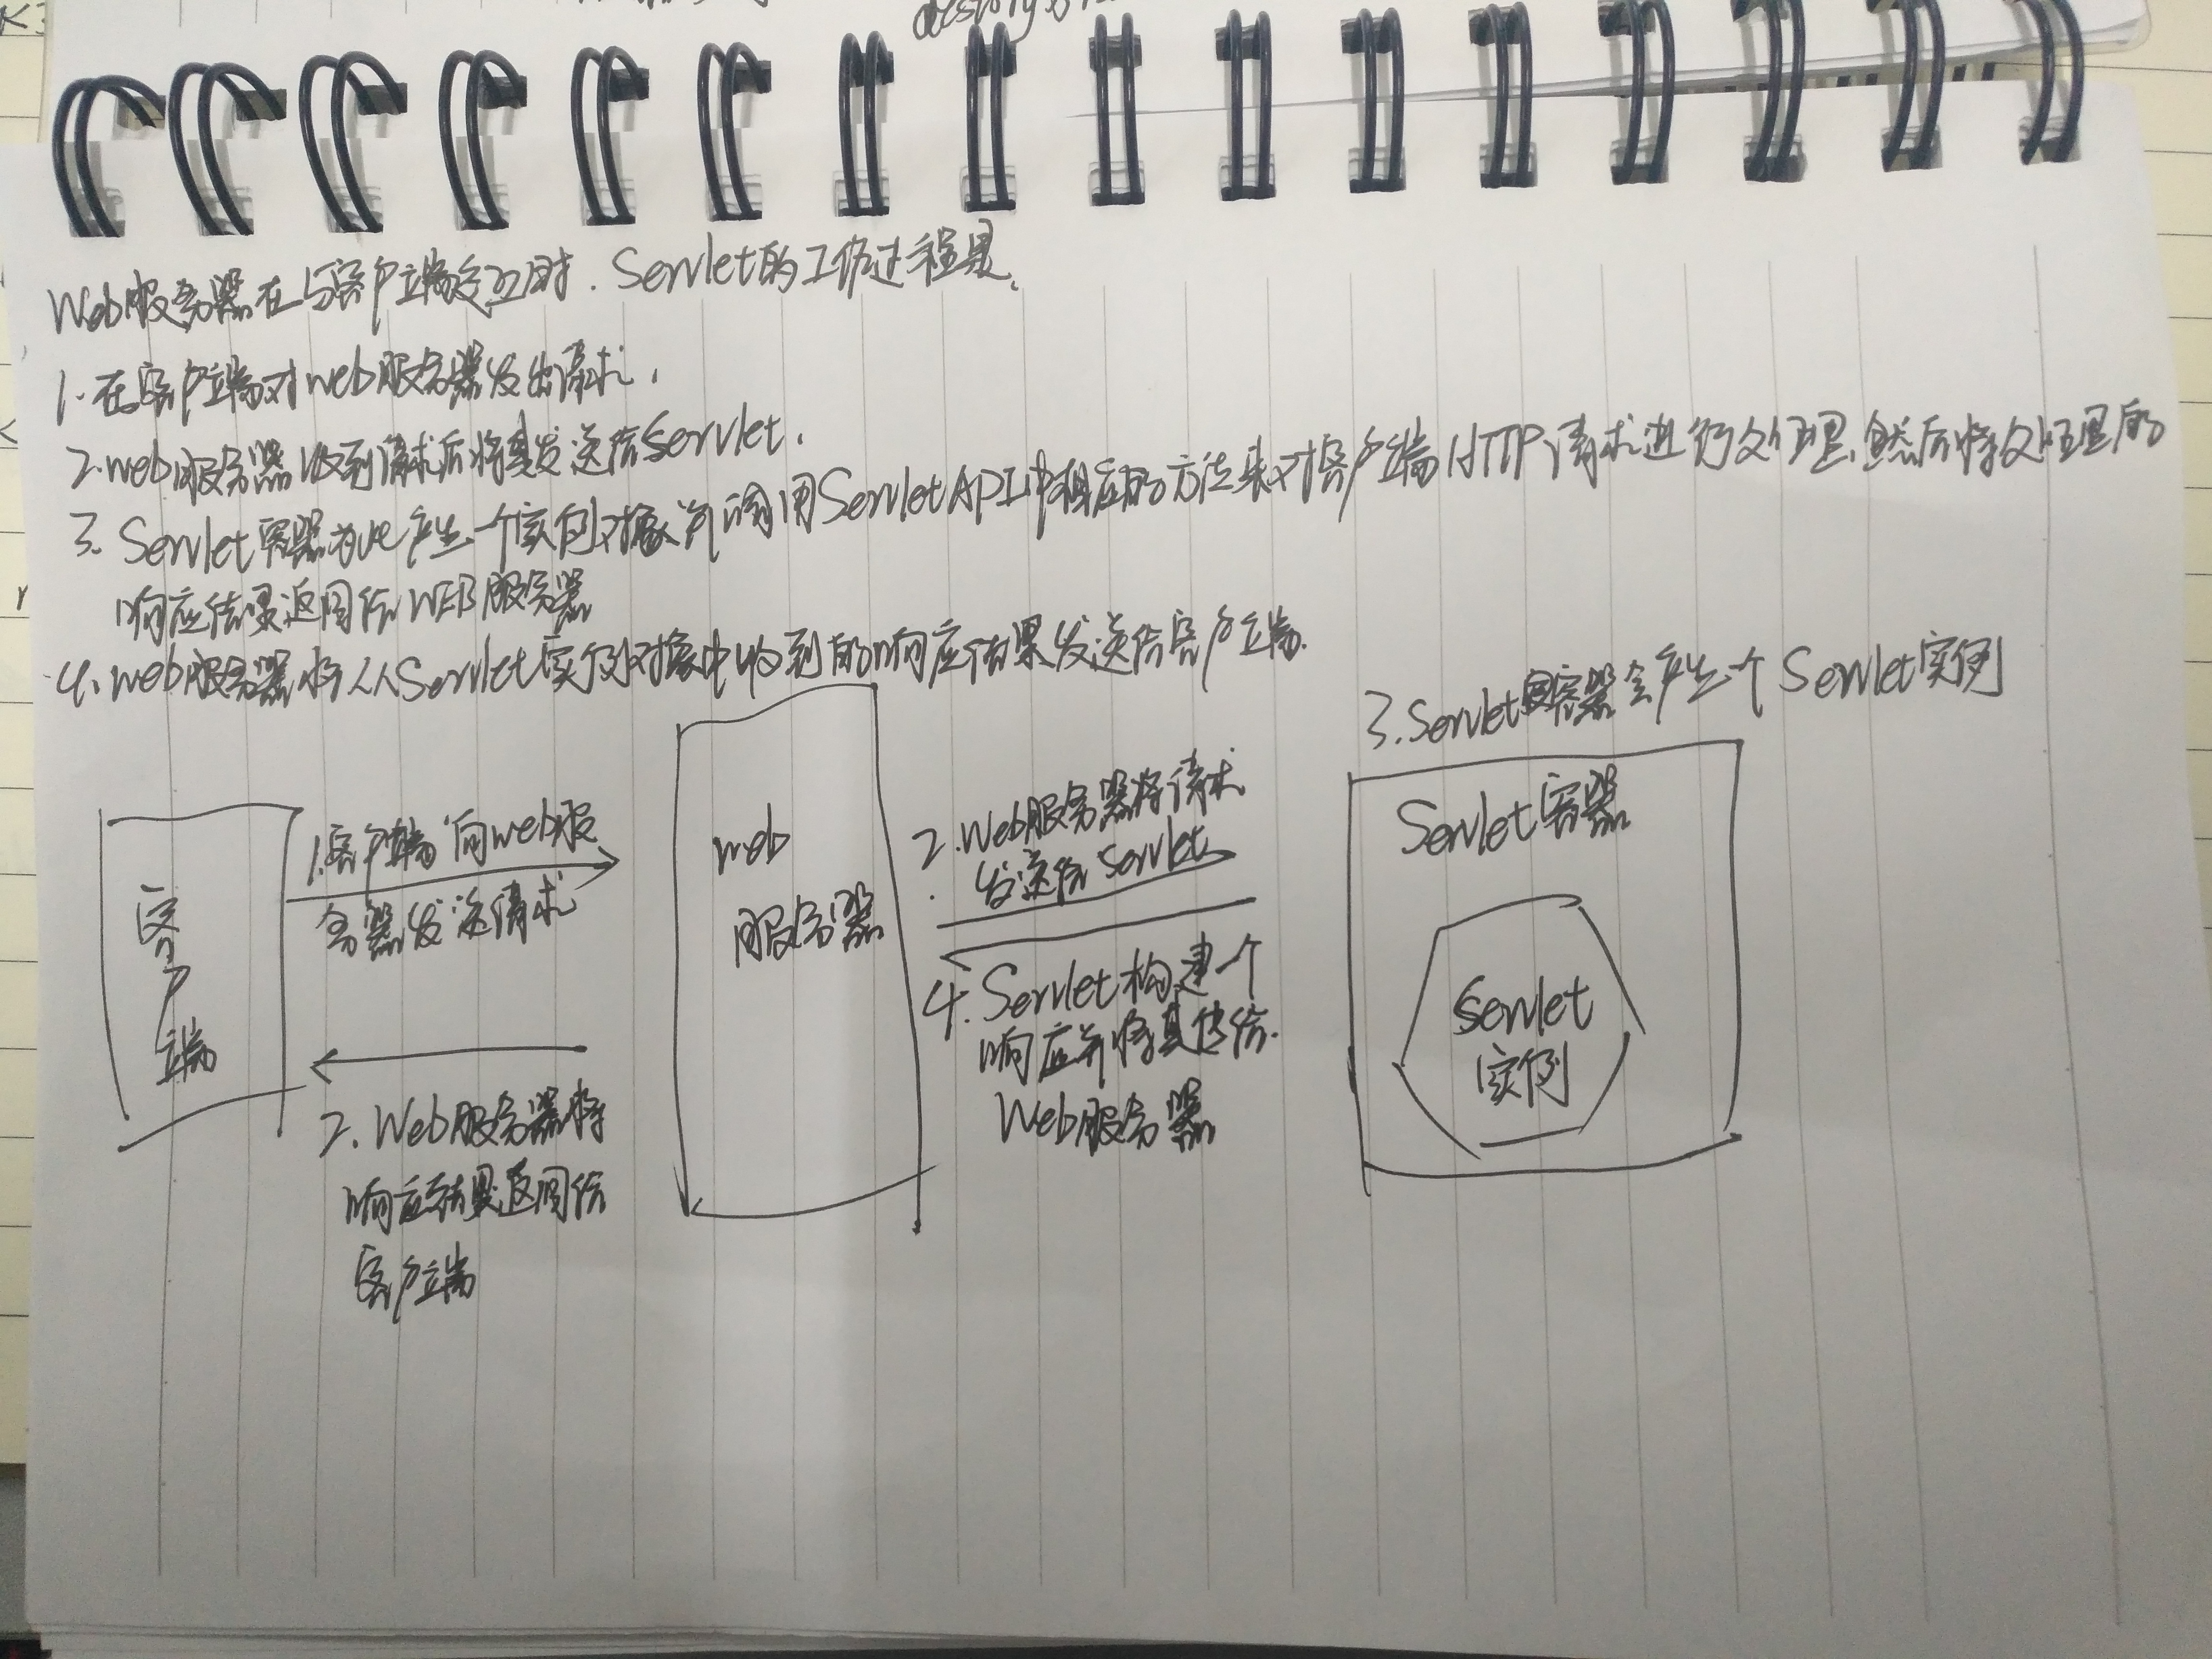 Web服务器在与客户端交互时. Servlet的工作过程是.
1. 在客户端对web服务器发出请求,
2. web服务器收到请求后将其发送给Servlet.
3. Servlet容器为此产生一个实例对象并调用ServletAPI中相应的方法来对客户端HTTP请求进行处理, 然后将处理的
响应结果返回给WEB服务器
4. web服务器将从Servlet实例对象中收到的响应结果发送给客户端.
3. Servlet容器会产生一个 Servlet实例
客户端
1. 客户端向web服
务器发送请求
2. Web服务器将
响应结果返回给
客户端
web
服务器
2. Web服务器将请求
发送给 Servlet
4. Servlet构建一个
响应并将其传给.
Web服务器
Servlet容器
Servlet
实例